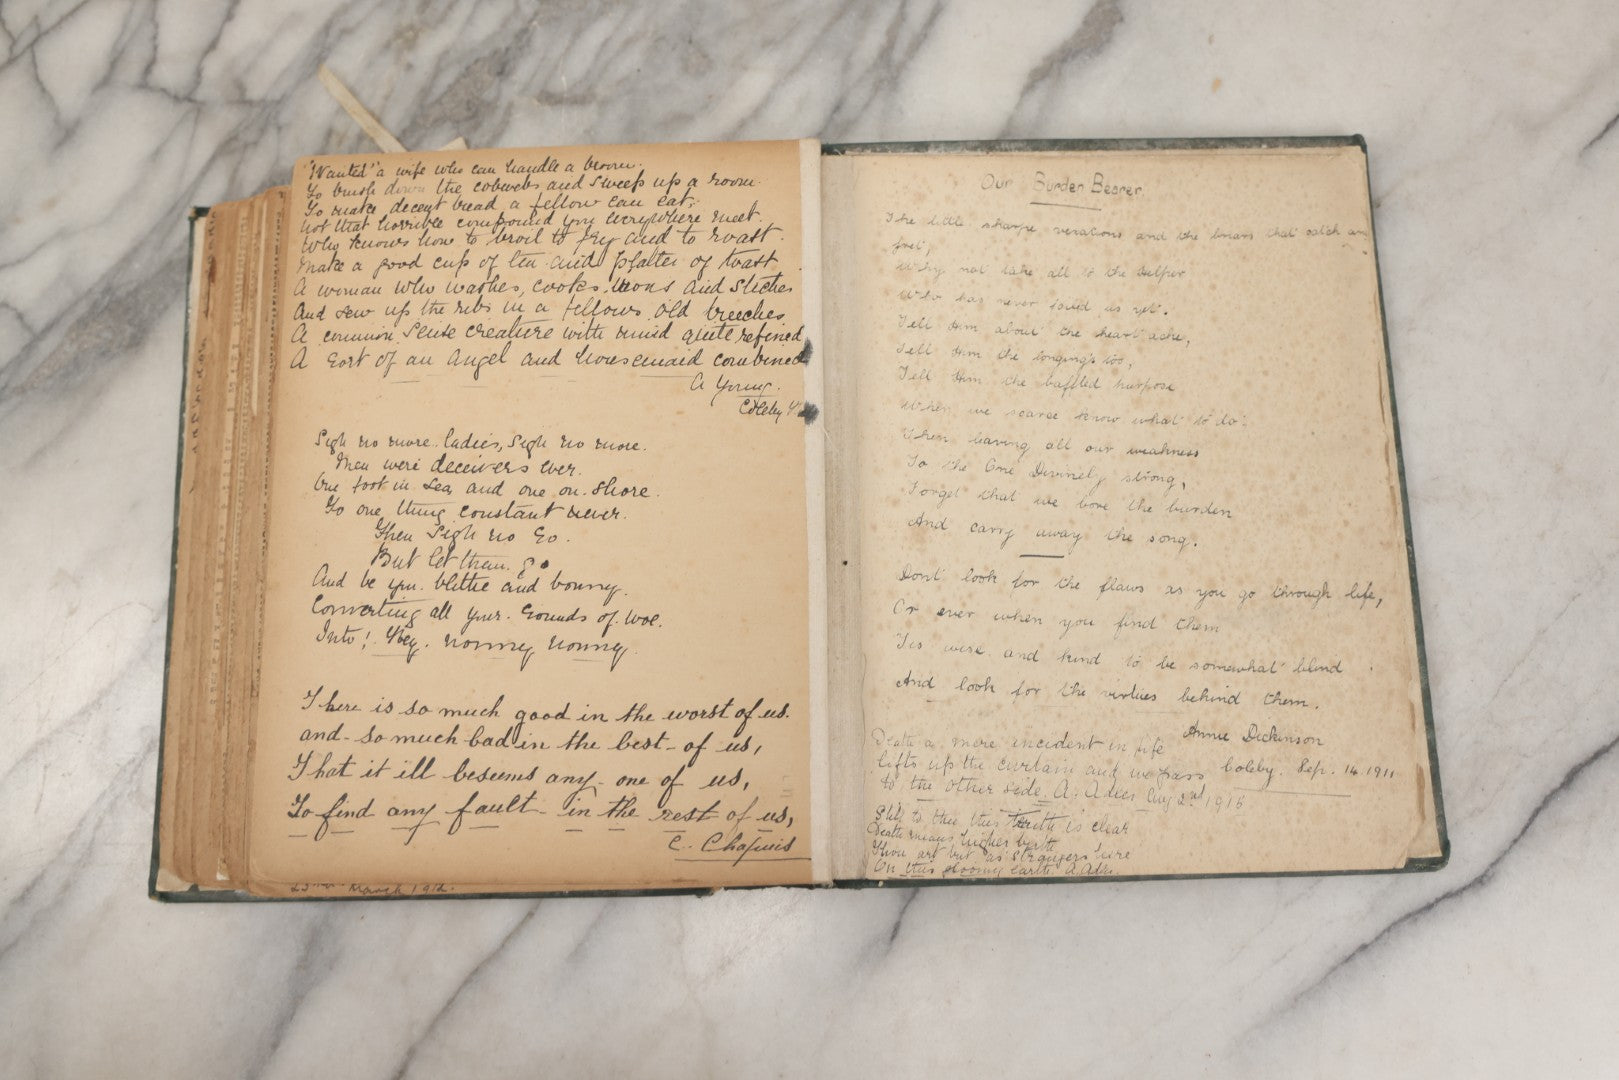 "Wanted" a wife who can handle a broom.
To brush down the cobwebs and sweep up a room.
To make decent bread a fellow can eat.
Not that horrible compound you everywhere meet.
Who knows how to broil to fry and to roast.
Make a good cup of tea and platter of toast.
A woman who washes, cooks, irons and stiches
And sew up the ribs in a fellows old breeches
A common sense creature with mind quite refined
A sort of an angel and housemaid combined
A Young.
Coleby
Sigh no more ladies, sigh no more.
Men were deceivers ever.
One foot in sea and one on shore.
To one thing constant never.
Then sigh no so.
But let them go
And be you blithe and bonny.
Converting all your sounds of woe.
Into! Hey. nonney nonney.
There is so much good in the worst of us.
and so much bad in the best of us,
That it ill beseems any one of us,
To find any fault in the rest of us,
C.
23rd March 1912.
Our Burden Bearer
The little sharpe vexations and the briars that catch an
fret,
Why not take all to the Helper
Who has never failed us yet.
Tell Him about the heart ache,
Tell Him the longings too,
Tell Him the baffled purpose
When we scarce know what to do.
Then leaving all our weakness
To the One Divinely strong,
Forget that we bore the burden
And carry away the song.
Dont look for the flaws as you go through life,
Or ever when you find them
Tis wise and kind to be somewhat blind
And look for the virtues behind them.
Annie Dickinson
Coleby. Sep. 14. 1911
Death a mere incident in life
lifts up the curtain and we pass
to the other side. A. Aug 2nd 1915
Still to thee this truth is clear
Death means higher birth
Thou art but as strangers here
On this gloomy earth A.